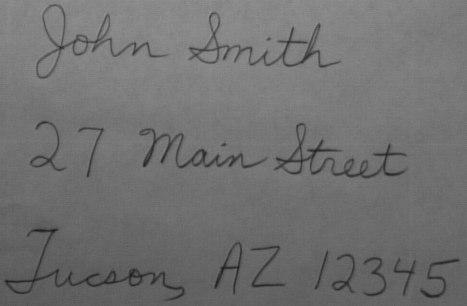 John Smith
27 Main Street
Tucson, AZ 12345